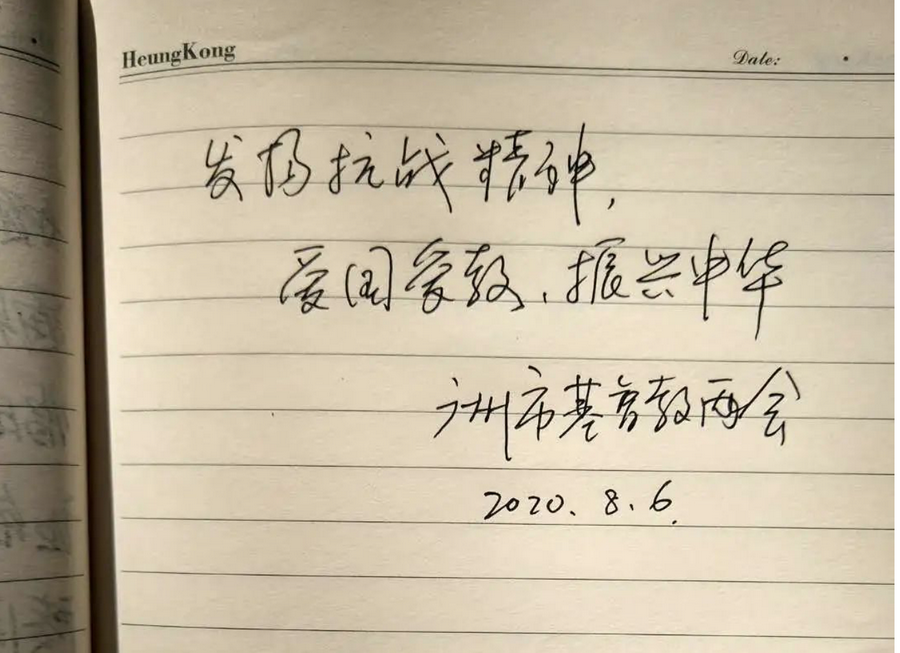 HeungKong
Date:
发扬抗战精神,
爱国爱教、振兴中华
广州市基督教两会
2020.8.6.